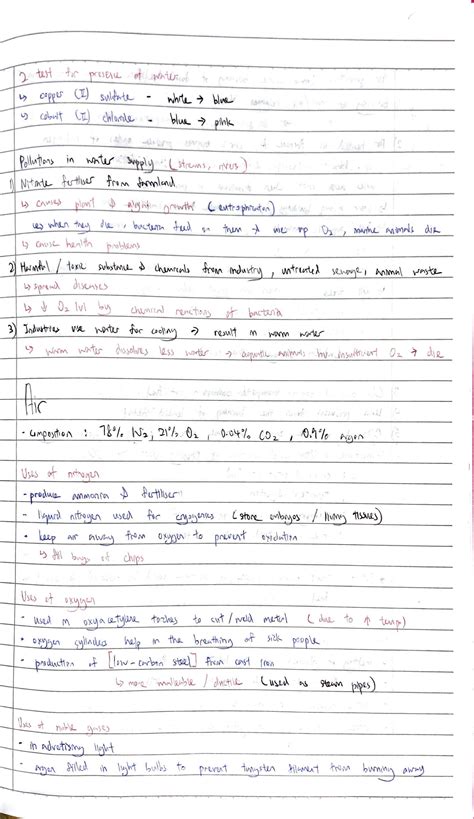 2 test for presence of water
↳ copper (II) sulfate - white → blue
↳ cobalt (II) chloride - blue → pink
Pollutions in water supply (streams, rivers)
1) Nitrate fertiliser from farmland
↳ causes plant & algal growth (eutrophication)
↳ when they die, bacteria feed on them → use up O2, marine animals die
↳ cause health problems
2) Harmful / toxic substance & chemicals from industry, untreated sewage, animal waste
↳ spread diseases
↳ ↓ O2 lvl by chemical reactions of bacteria
3) Industries use water for cooling → result in warm water
↳ warm water dissolves less water → aquatic animals insufficient O2 → die
Air
- composition : 78% N2, 21% O2, 0.04% CO2, 0.9% argon
Uses of nitrogen
- produce ammonia & fertiliser
- liquid nitrogen used for cryogenics (store embryos / living tissues)
- keep air away from oxygen to prevent oxidation
↳ fill bags of chips
Uses of oxygen
- used in oxyacetylene torches to cut/weld metal (due to ↑ temp)
- oxygen cylinders help in the breathing of sick people
- production of [low-carbon steel] from cast iron
↳ more malleable / ductile (used as steam pipes)
Uses of noble gases
- in advertising light
- argon filled in light bulbs to prevent tungsten filament from burning away